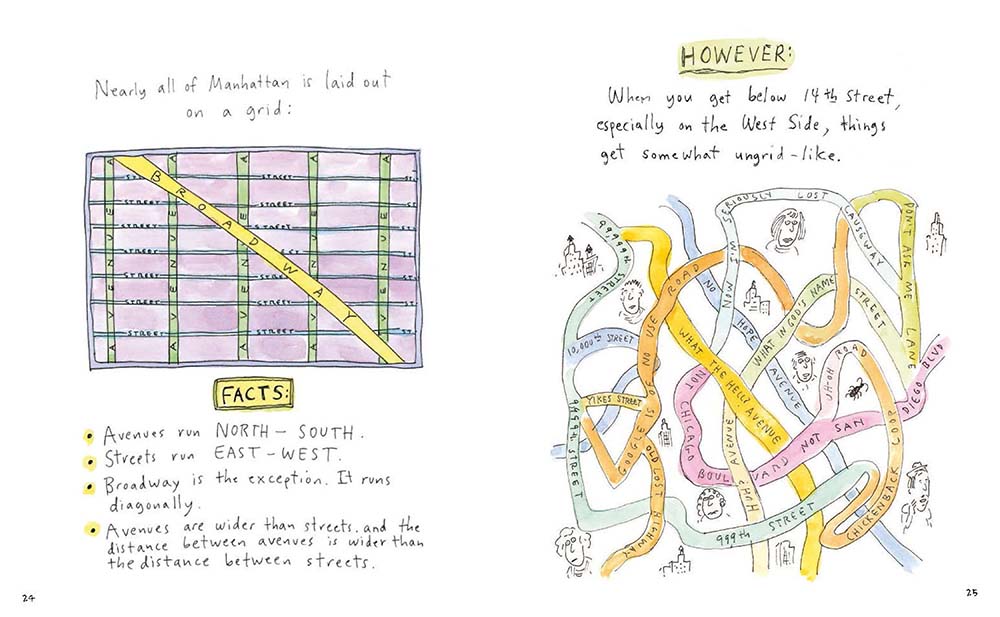 Nearly all of Manhattan is laid out
on a grid:
AVENUE
AVENUE
AVENUE
AVENUE
AVENUE
BROADWAY
STREET
STREET
ST.
STREET
STREET
ST.
STREET
STREET
ST.
STREET
STREET
ST.
STREET
STREET
ST.
STREET
STREET
ST.
STREET
STREET
ST.
FACTS:
• Avenues run NORTH – SOUTH.
• Streets run EAST – WEST.
• Broadway is the exception. It runs
diagonally.
• Avenues are wider than streets, and the
distance between avenues is wider than
the distance between streets.
24
HOWEVER:
When you get below 14th Street,
especially on the West Side, things
get somewhat ungrid-like.
99,999th STREET
NO NO HOPE AVENUE
NOW I'M SERIOUSLY LOST CAUSEWAY
DON'T ASK ME LANE
GOOGLE IS OF NO USE ROAD
WHAT IN GOD'S NAME STREET
10,000th STREET
WHAT THE HELL? AVENUE
UH-OH ROAD
YIKES STREET
9999th STREET
NOT CHICAGO BOULEVARD
NOT SAN DIEGO BLVD
OLD LOST HIGHWAY
HUH? AVENUE
CHICKENBACK COOP
999th STREET
25